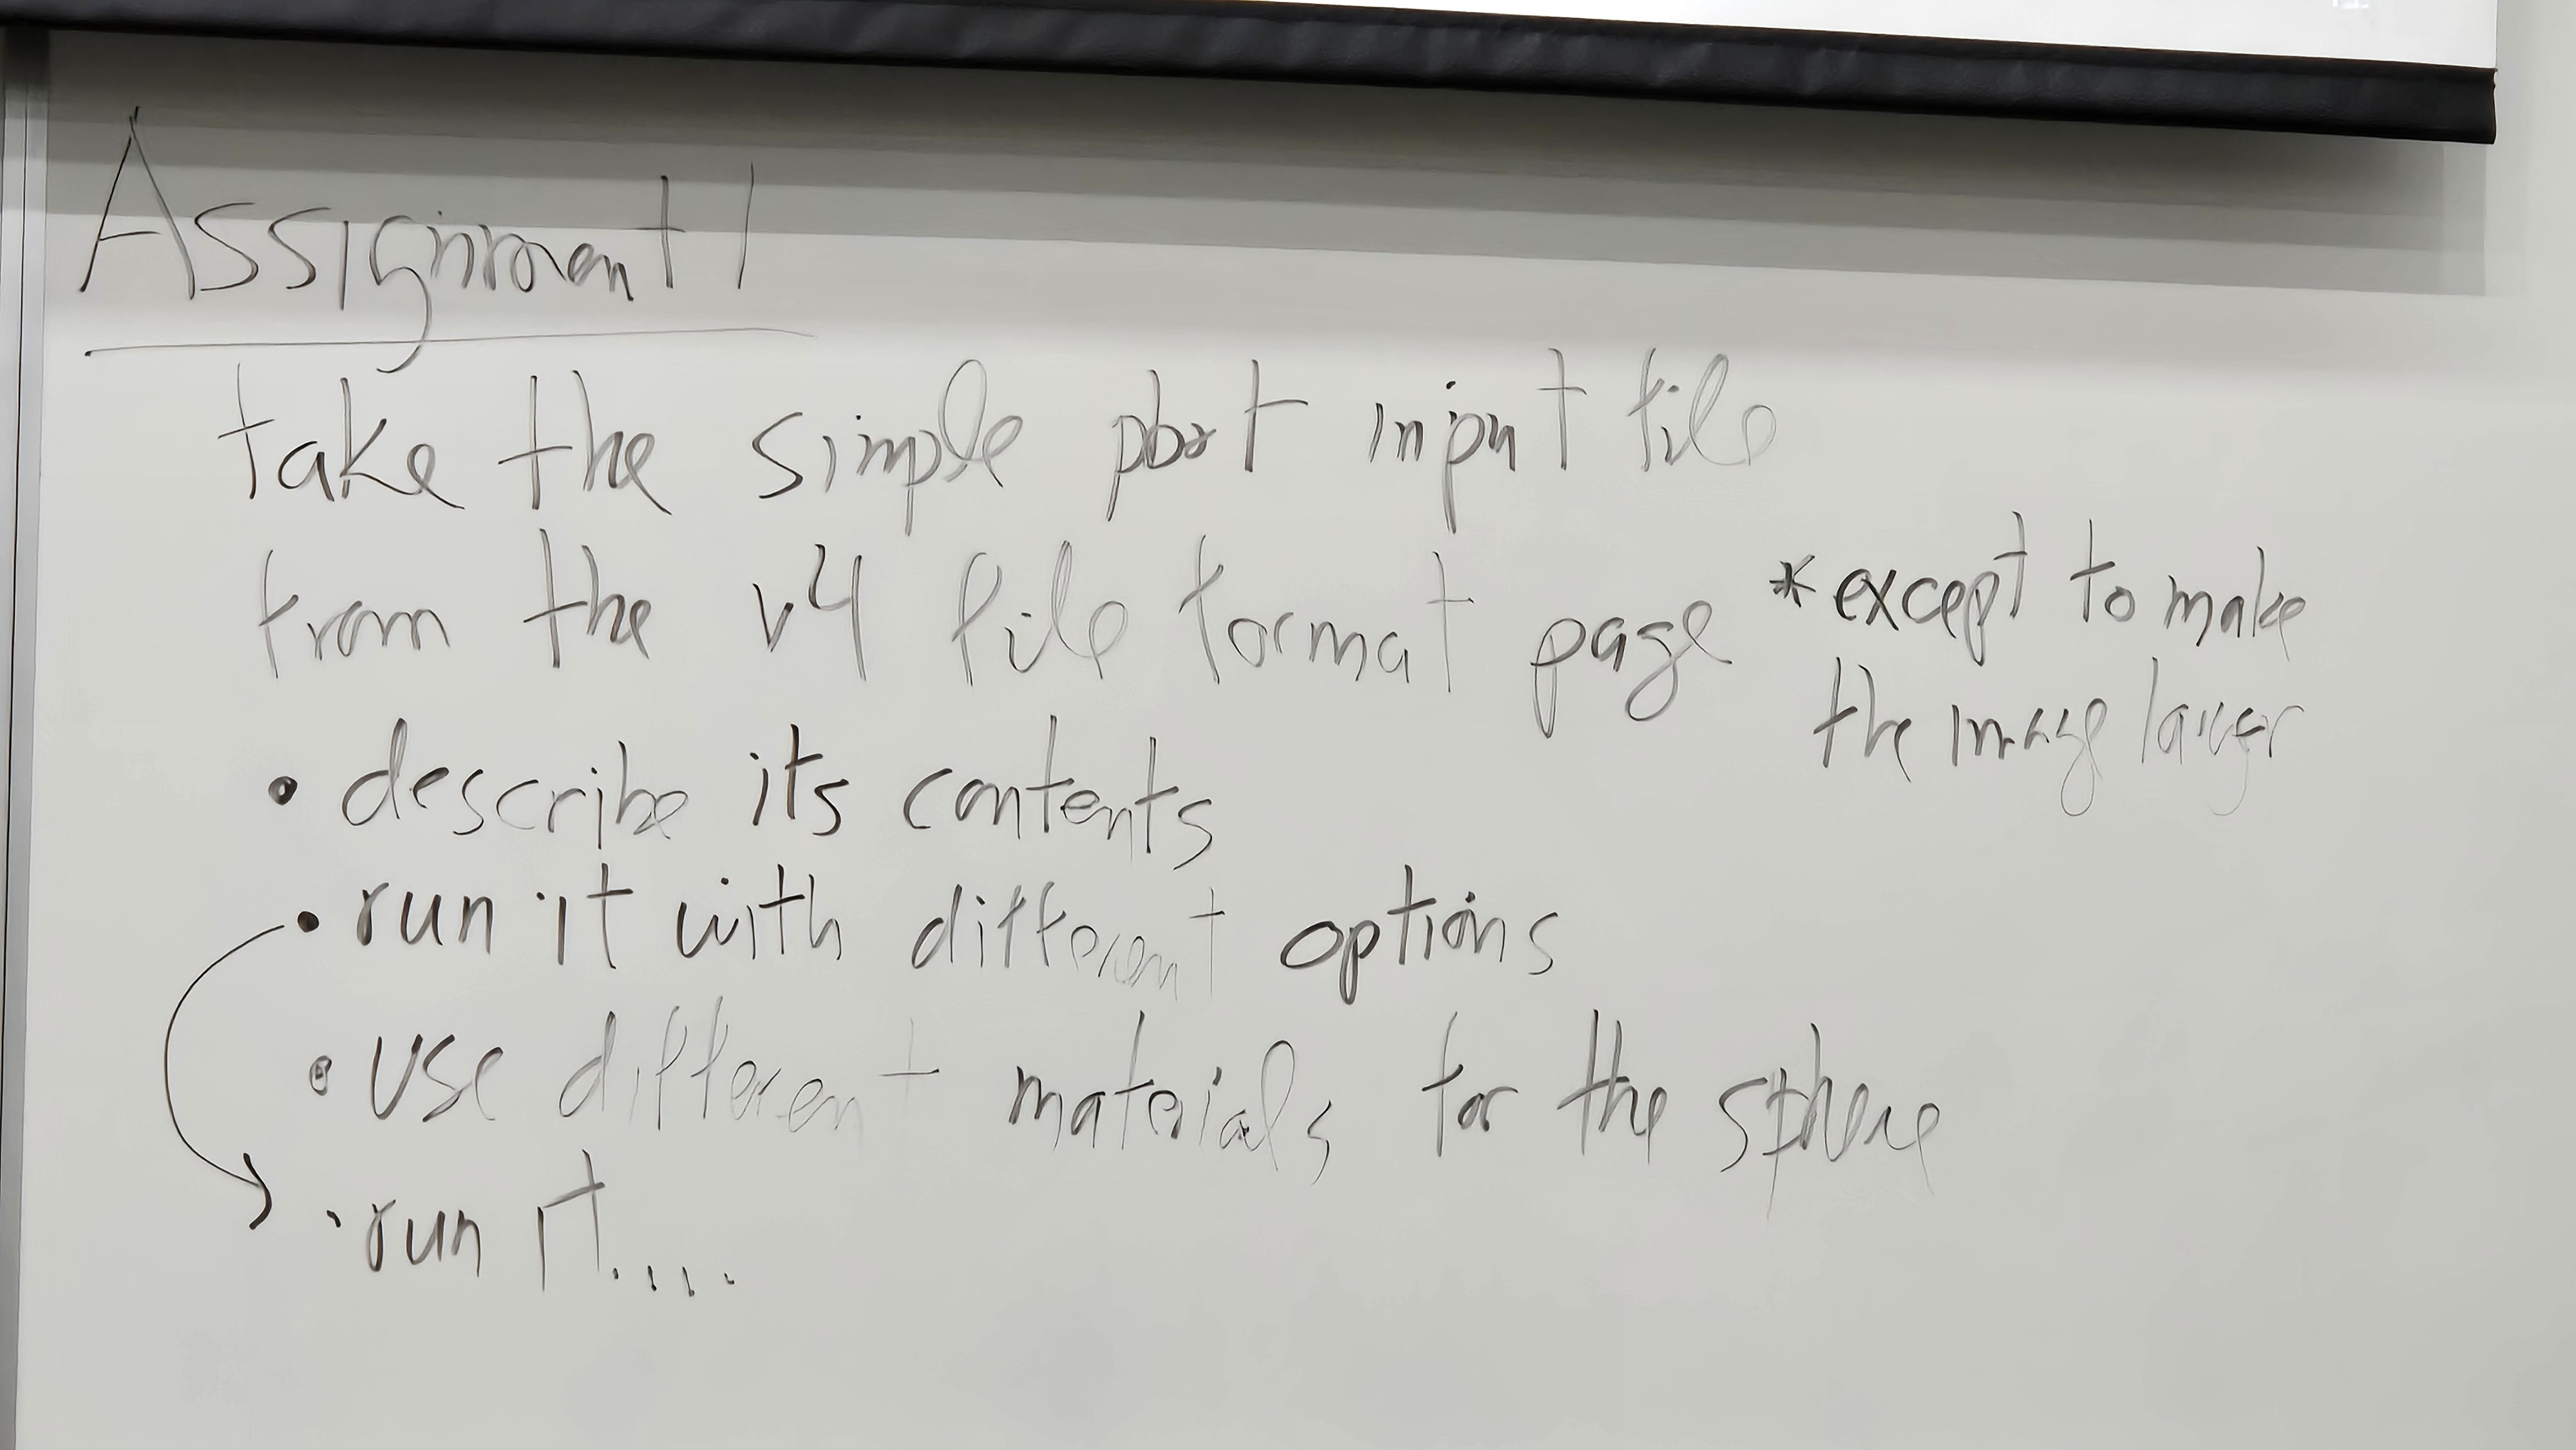 Assignment 1
take the simple pbrt input file
from the v4 file format page
*except to make
the image larger
• describe its contents
• run it with different options
• use different materials for the sphere
• run it....